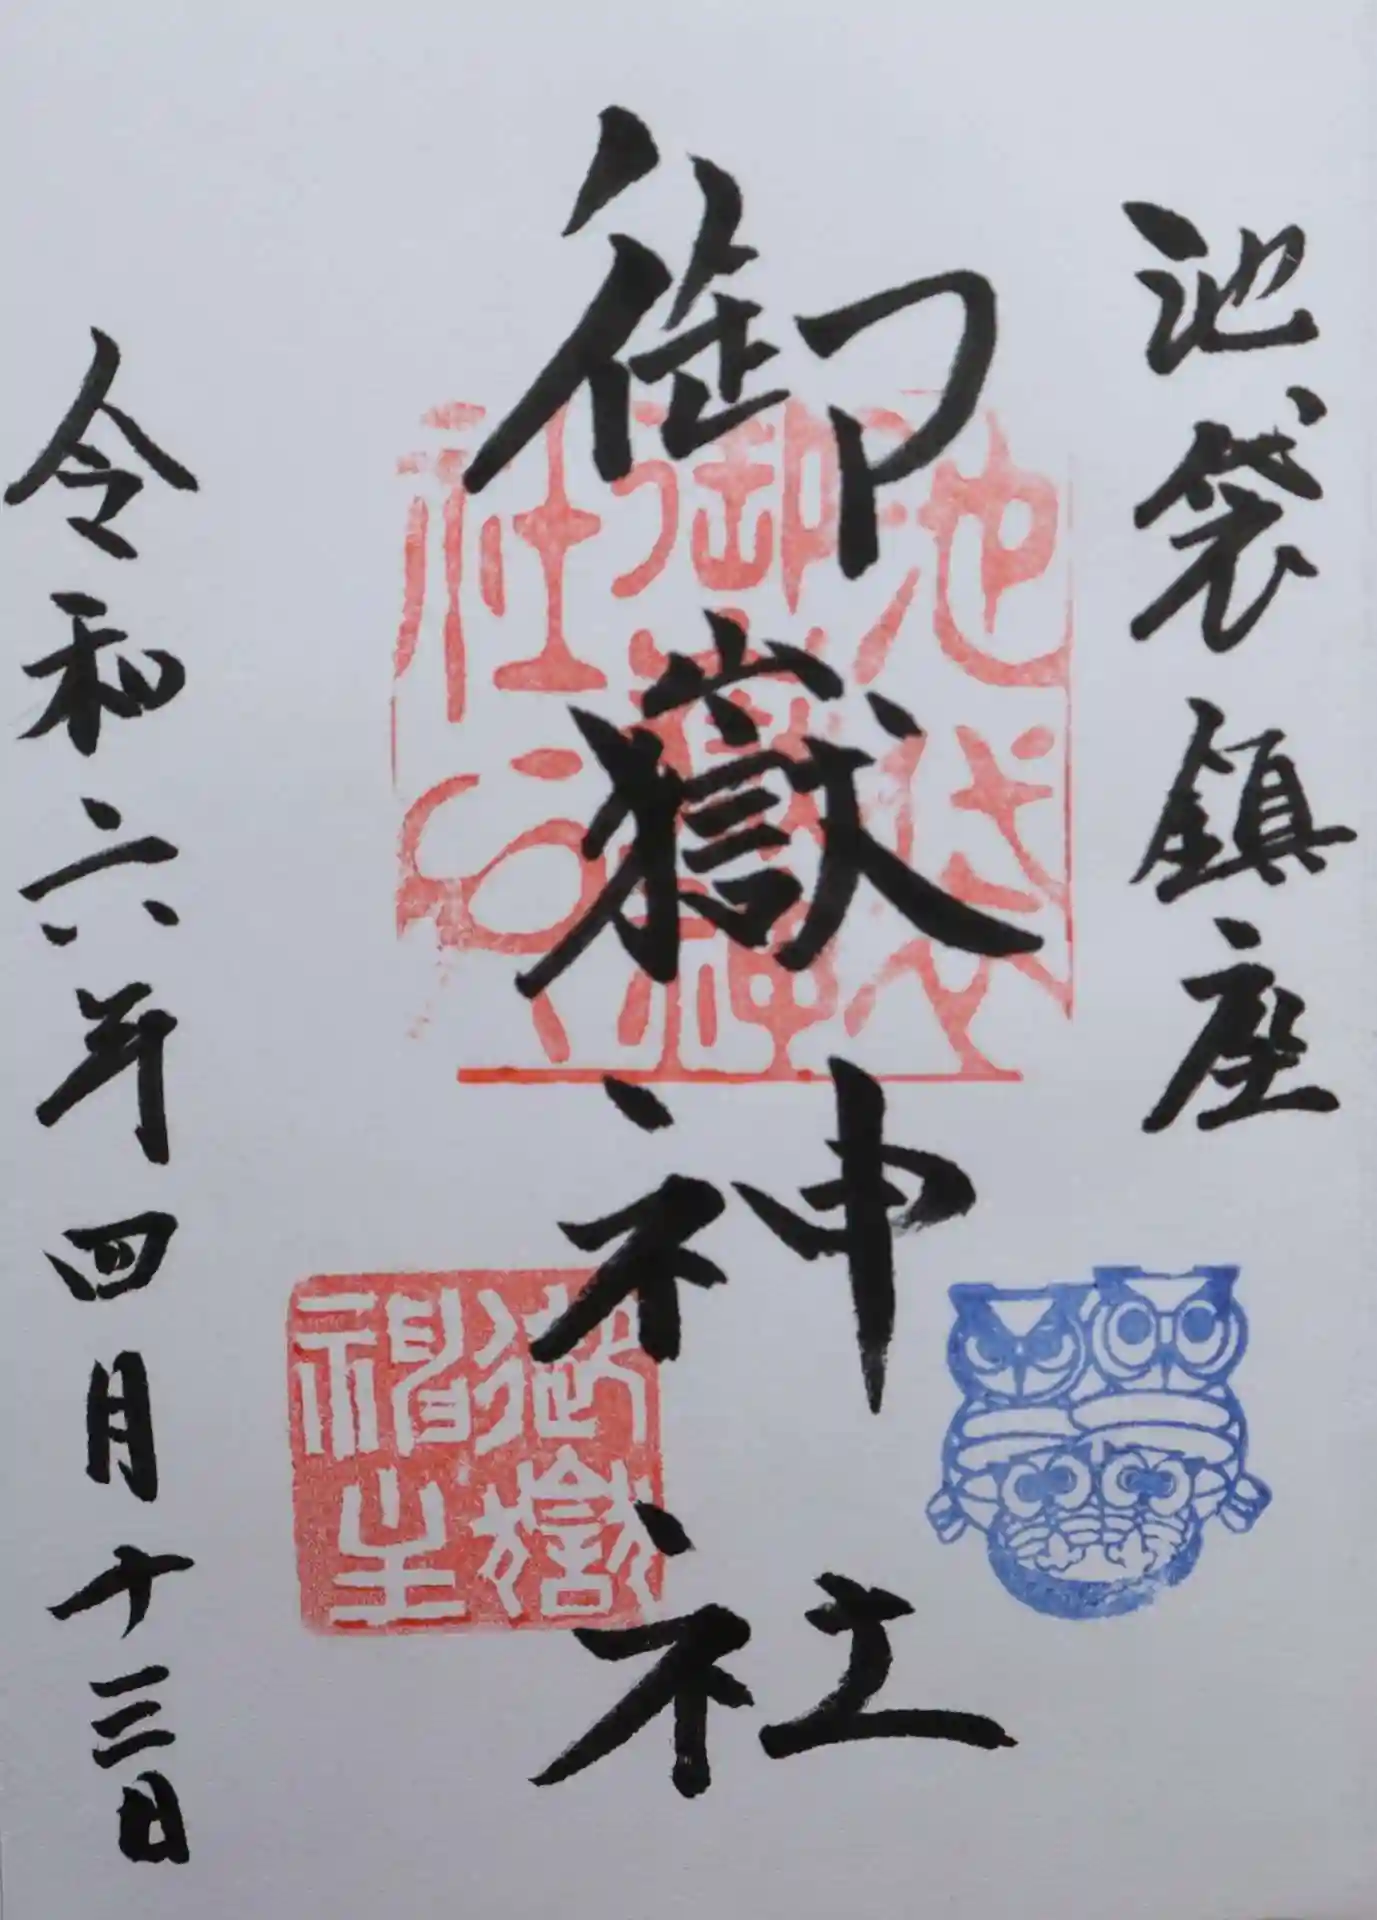 池袋鎮座
御嶽神社
令和六年四月十三日
池袋
御嶽神
社
御嶽